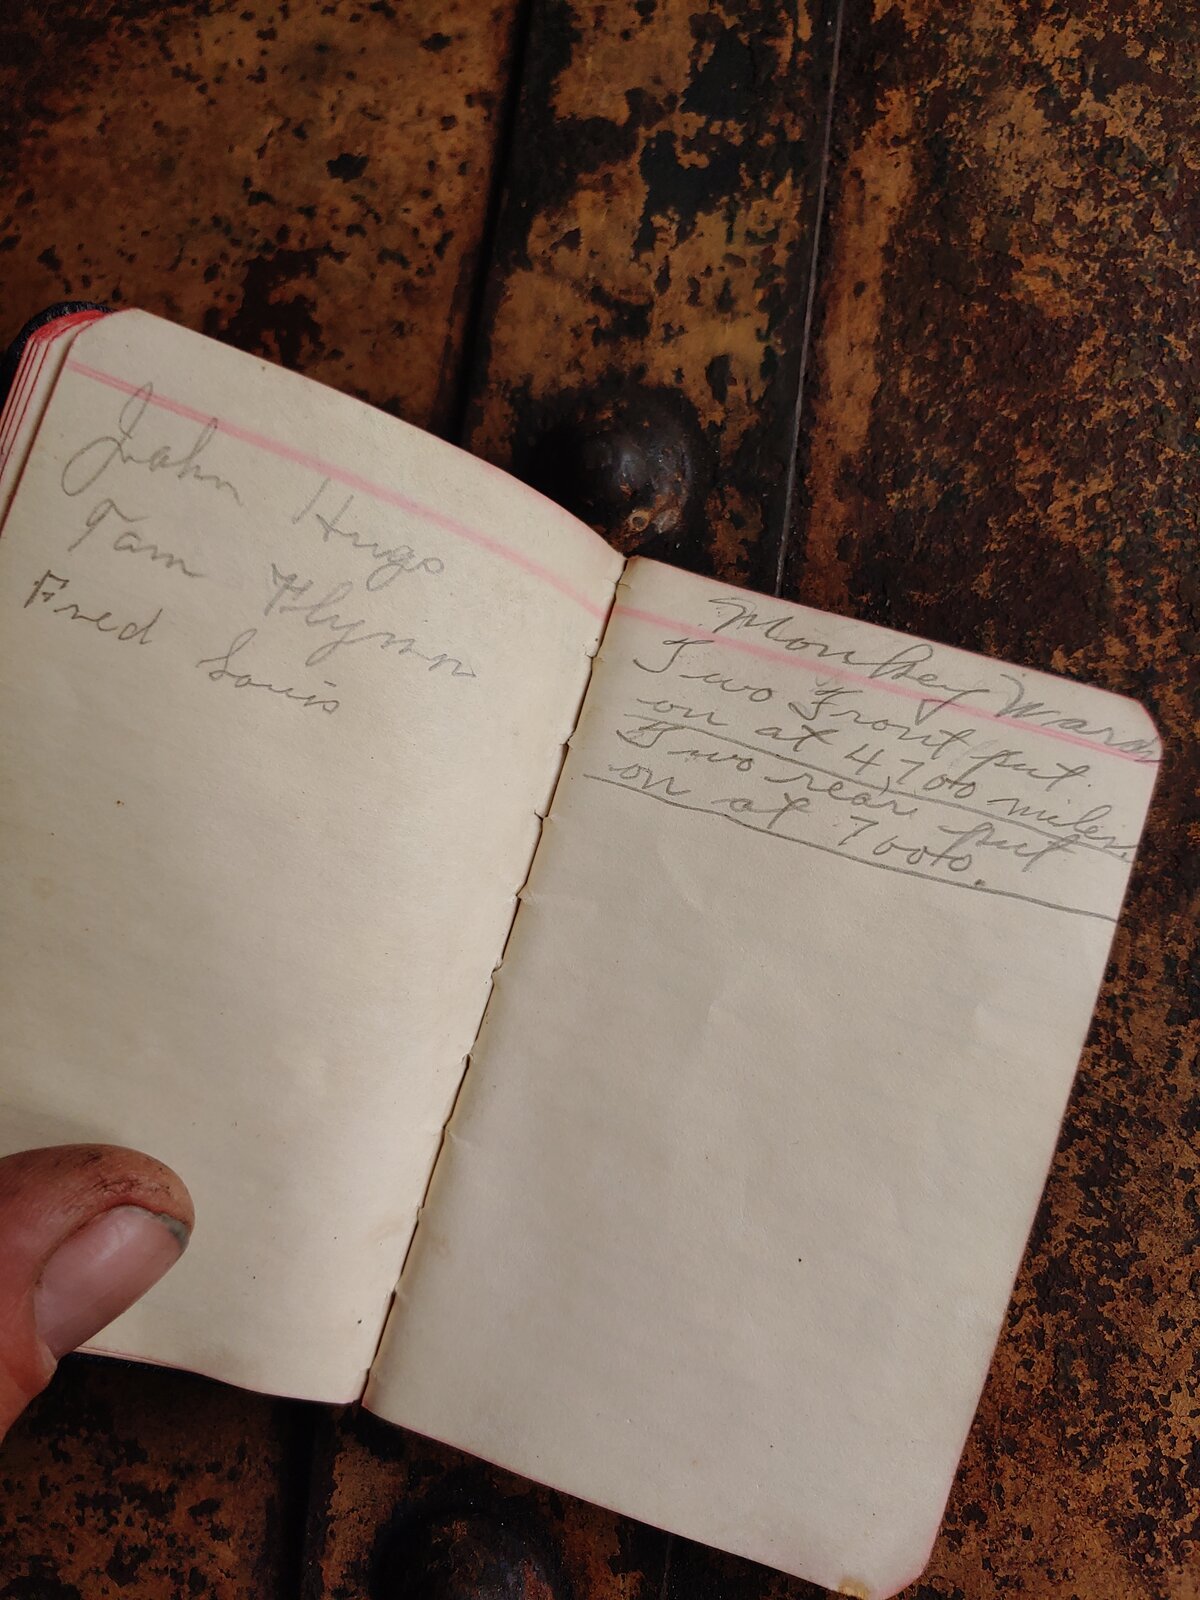 John Hugo
Tom Flynn
Fred Louis
Monkey Ward
Two Front put
on at 4,700 miles.
Two rear put
on at 7000.